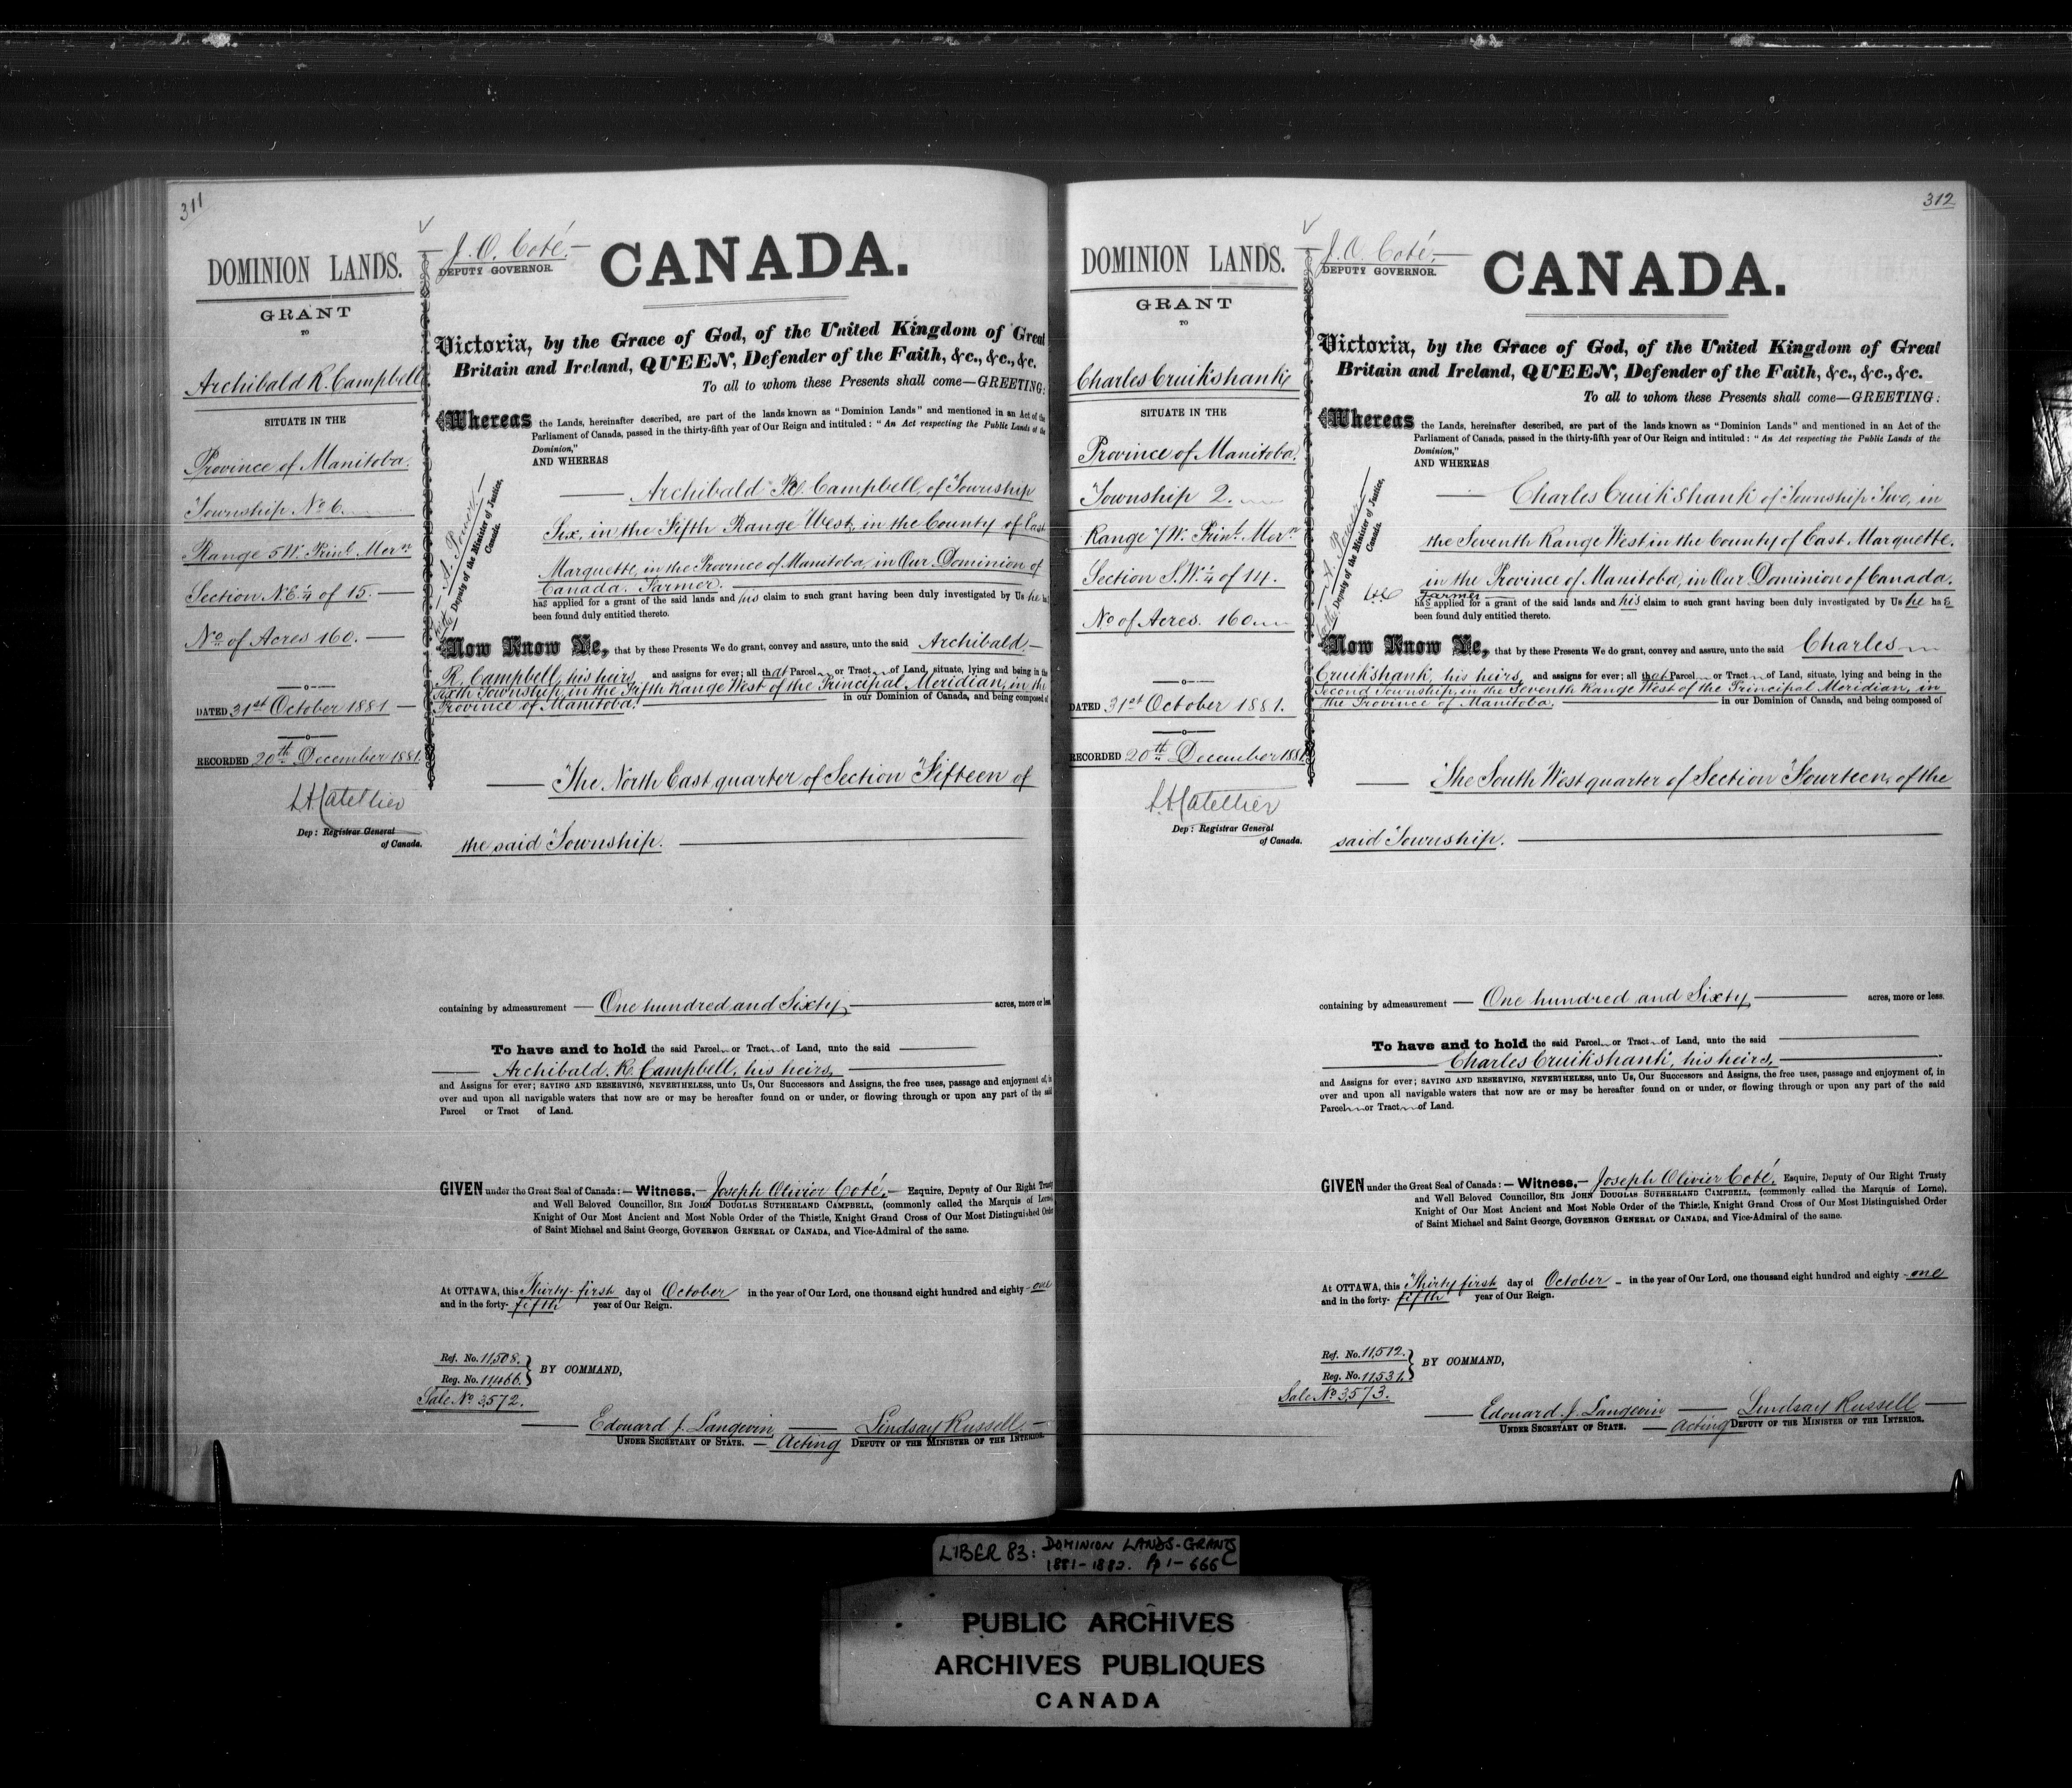 311
DOMINION LANDS.
GRANT
TO
Archibald R. Campbell
SITUATE IN THE
Province of Manitoba.
Township No 6.
Range 5 W. Prinl. Mern
Section N.E. 1/4 of 15.
No of Acres 160.
DATED 31st October 1881
RECORDED 20th December 1881.
L A Catellier
Dep: Registrar General
of Canada.
J. O. Coté.
DEPUTY GOVERNOR.
CANADA.
Victoria, by the Grace of God, of the United Kingdom of Great
Britain and Ireland, QUEEN, Defender of the Faith, &c., &c., &c.
To all to whom these Presents shall come—GREETING:
Whereas the Lands, hereinafter described, are part of the lands known as "Dominion Lands" and mentioned in an Act of the
Parliament of Canada, passed in the thirty-fifth year of Our Reign and intituled: "An Act respecting the Public Lands of the
Dominion,"
AND WHEREAS
A. Power
Deputy of the Minister of Justice,
Canada.
Archibald R. Campbell, of Township
Six, in the Fifth Range West, in the County of East
Marquette, in the Province of Manitoba, in Our Dominion of
Canada. Farmer.
has applied for a grant of the said lands and his claim to such grant having been duly investigated by Us he has
been found duly entitled thereto.
Now Know Ye, that by these Presents We do grant, convey and assure, unto the said Archibald
R. Campbell, his heirs and assigns for ever; all that Parcel or Tract of Land, situate, lying and being in the
Sixth Township, in the Fifth Range West of the Principal Meridian, in the
Province of Manitoba, in our Dominion of Canada, and being composed of
The North East quarter of Section Fifteen of
the said Township.
containing by admeasurement One hundred and Sixty acres, more or less
To have and to hold the said Parcel or Tract of Land, unto the said
Archibald. R. Campbell, his heirs,
and Assigns for ever; SAVING AND RESERVING, NEVERTHELESS, unto Us, Our Successors and Assigns, the free uses, passage and enjoyment of, in
over and upon all navigable waters that now are or may be hereafter found on or under, or flowing through or upon any part of the said
Parcel or Tract of Land.
GIVEN under the Great Seal of Canada:—Witness,—Joseph Olivier Coté,—Esquire, Deputy of Our Right Trusty
and Well Beloved Councillor, SIR JOHN DOUGLAS SUTHERLAND CAMPBELL, (commonly called the Marquis of Lorne),
Knight of Our Most Ancient and Most Noble Order of the Thistle, Knight Grand Cross of Our Most Distinguished Order
of Saint Michael and Saint George, GOVERNOR GENERAL OF CANADA, and Vice-Admiral of the same.
At OTTAWA, this Thirty-first day of October in the year of Our Lord, one thousand eight hundred and eighty-one
and in the forty-fifth year of Our Reign.
Ref. No. 11,508.
Reg. No. 11,466.
BY COMMAND,
Sale No 3,572.
Edouard J. Langevin Lindsay Russell
UNDER SECRETARY OF STATE. — Acting DEPUTY OF THE MINISTER OF THE INTERIOR.
312
DOMINION LANDS.
GRANT
TO
Charles Cruikshank
SITUATE IN THE
Province of Manitoba.
Township 2.
Range 7 W. Prinl. Mern
Section S.W. 1/4 of 14.
No of Acres. 160
DATED 31st October 1881.
RECORDED 20th December 1881
L A Catellier
Dep: Registrar General
of Canada.
J. O. Coté,
DEPUTY GOVERNOR.
CANADA.
Victoria, by the Grace of God, of the United Kingdom of Great
Britain and Ireland, QUEEN, Defender of the Faith, &c., &c., &c.
To all to whom these Presents shall come—GREETING:
Whereas the Lands, hereinafter described, are part of the lands known as "Dominion Lands" and mentioned in an Act of the
Parliament of Canada, passed in the thirty-fifth year of Our Reign and intituled: "An Act respecting the Public Lands of the
Dominion,"
AND WHEREAS
A. Power
Deputy of the Minister of Justice,
Canada.
Charles Cruikshank of Township Two, in
the Seventh Range West in the County of East Marquette,
in the Province of Manitoba, in Our Dominion of Canada,
Farmer
has applied for a grant of the said lands and his claim to such grant having been duly investigated by Us he has
been found duly entitled thereto.
Now Know Ye, that by these Presents We do grant, convey and assure, unto the said Charles
Cruikshank, his heirs, and assigns for ever; all that Parcel or Tract of Land, situate, lying and being in the
Second Township, in the Seventh Range West of the Principal Meridian, in
the Province of Manitoba, in our Dominion of Canada, and being composed of
The South West quarter of Section Fourteen, of the
said Township.
containing by admeasurement — One hundred and Sixty acres, more or less.
To have and to hold the said Parcel or Tract of Land, unto the said
Charles Cruikshank, his heirs,
and Assigns for ever; SAVING AND RESERVING, NEVERTHELESS, unto Us, Our Successors and Assigns, the free uses, passage and enjoyment of, in
over and upon all navigable waters that now are or may be hereafter found on or under, or flowing through or upon any part of the said
Parcel or Tract of Land.
GIVEN under the Great Seal of Canada:—Witness,—Joseph Olivier Coté, Esquire, Deputy of Our Right Trusty
and Well Beloved Councillor, SIR JOHN DOUGLAS SUTHERLAND CAMPBELL, (commonly called the Marquis of Lorne),
Knight of Our Most Ancient and Most Noble Order of the Thistle, Knight Grand Cross of Our Most Distinguished Order
of Saint Michael and Saint George, GOVERNOR GENERAL OF CANADA, and Vice-Admiral of the same.
At OTTAWA, this Thirty first day of October in the year of Our Lord, one thousand eight hundred and eighty-one
and in the forty-fifth year of Our Reign.
Ref. No. 11,512.
Reg. No. 11,531.
BY COMMAND,
Sale No 3,573.
Edouard J. Langevin — Lindsay Russell
UNDER SECRETARY OF STATE. — Acting DEPUTY OF THE MINISTER OF THE INTERIOR.
LIBER 83: DOMINION LANDS-GRANTS
1881-1882. Pp 1-666
PUBLIC ARCHIVES
ARCHIVES PUBLIQUES
CANADA